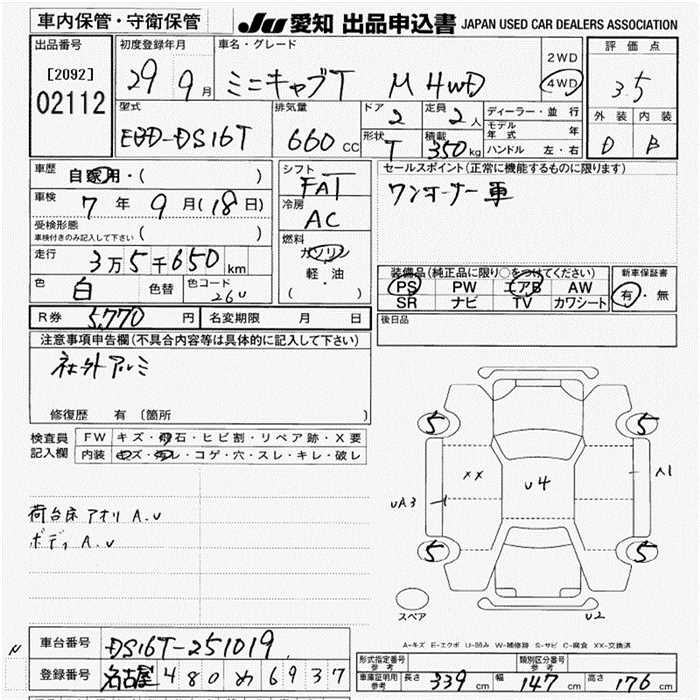 車内保管・守衛保管
JU 愛知 出品申込書 JAPAN USED CAR DEALERS ASSOCIATION
出品番号 [2092] 02112
初度登録年月 29 9月
車名・グレード ミニキャブT M 4WD
2WD 4WD
評価点 3.5
外装 内装
D B
型式 EBD-DS16T
排気量 660 CC
ドア 2
定員 2人
形状 T
積載 350kg
ディーラー・並行
モデル年式 年
ハンドル 左・右
車歴 自家用・( )
車検 7年 9月(18日)
受検形態
車検付きのみ記入して下さい ( )
走行 3万5千650km
色 白 色替 色コード 26U
シフト FAT
冷房 AC
燃料 ガソリン
軽・油
( ・ )
セールスポイント(正常に機能するものに限ります)
ワンオーナー車
装備品(純正品に限り○をつけてください)
PS PW エアB AW
SR ナビ TV カワシート
新車保証書
有・無
R券 5,770円 名変期限 月 日
後日品
注意事項申告欄(不具合内容等は具体的に記入して下さい)
社外アルミ
修復歴 有 〔箇所 〕
検査員記入欄
FW キズ・飛石・ヒビ割・リペア跡・X要
内装 キズ・汚レ・コゲ・穴・スレ・キレ・破レ
荷台床 アオリ A.U
ボディ A.U
5 5
XX A1
U4
UA3
5 5
スペア
U2
A-キズ E-エクボ U-凹み W-補修跡 S-サビ C-腐食 XX-交換済
N 車台番号 DS16T-251019
登録番号 名古屋 480 め 6937
形式指定番号 参考
類別区分番号 参考
車庫証明用 参考 長さ 339cm 幅 147cm 高さ 176cm